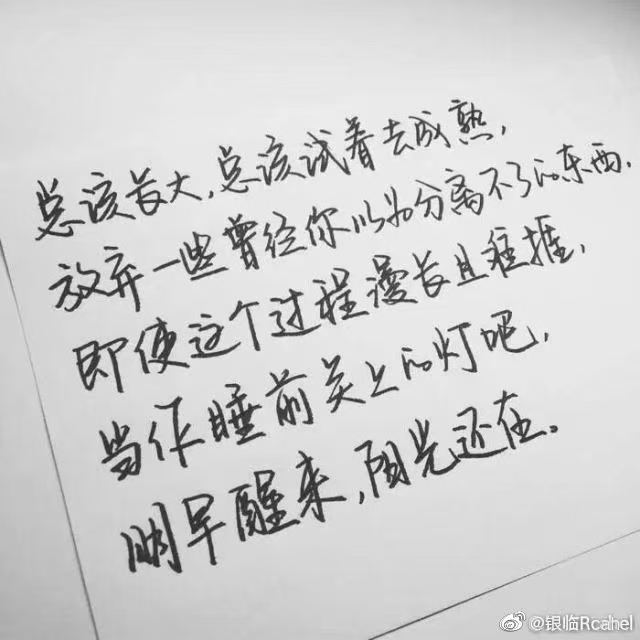 总该长大,总该试着去成熟,
放弃一些曾经你以为分离不了的东西,
即使这个过程漫长且狂揰,
当作睡前关上的灯吧,
明早醒来,阳光还在。
@银临Rcahel